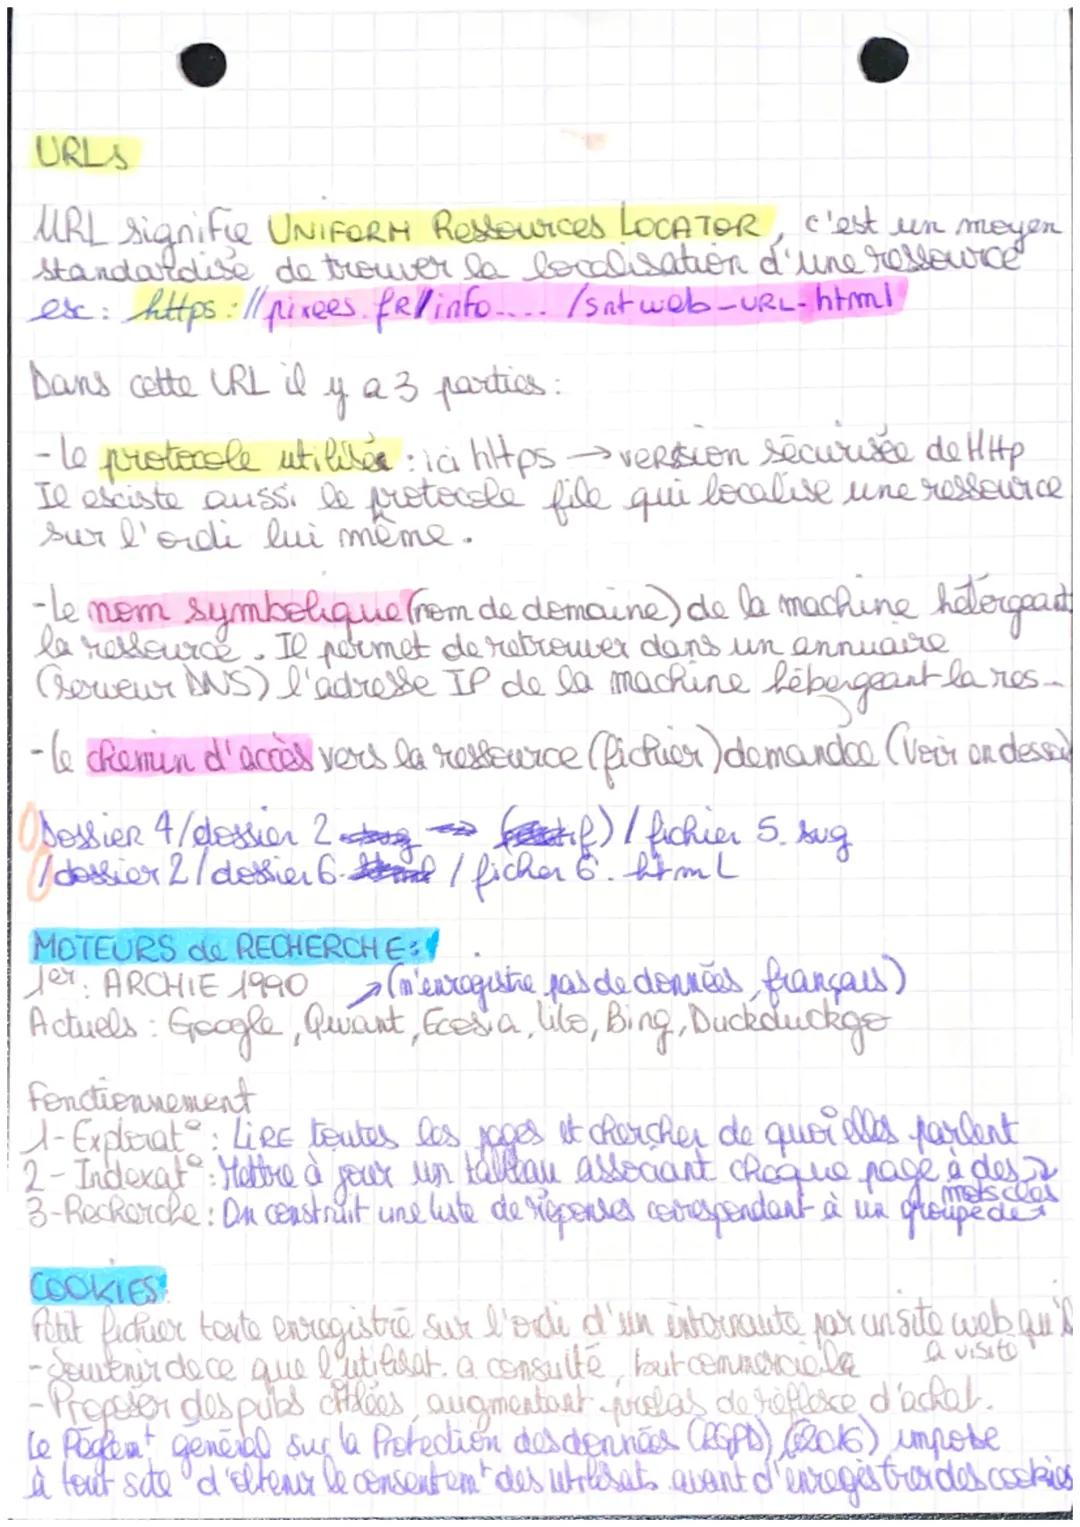 URLs
URL signifie UNIFORM Ressources LOCATOR, c'est un moyen
standardisé de trouver la localisation d'une ressource
ex : https://pixees.fR/info..... /snt web-URL-html
Dans cette URL il y a 3 parties :
- le protocole utilisée : ici https → version sécurisée de Http
Il existe aussi le protocole file qui localise une ressource
sur l'ordi lui même.
- Le nom symbolique (nom de domaine) de la machine hébergeant
la ressource. Il permet de retrouver dans un annuaire
(serveur DNS) l'adresse IP de la machine hébergeant la res-
- le chemin d'accès vers la ressource (fichier) demandée (Voir en desso
Dossier 4/dossier 2 / fichier 5. svg
/dossier 2/dossier 6. / ficher 6. html
MOTEURS de RECHERCHE :
1er : ARCHIE 1990 → (n'enregistre pas de données, français)
Actuels : Google, Qwant, Ecosia, Lilo, Bing, Duckduckgo
Fonctionnement
1- Explorat° : LIRE toutes les pages et chercher de quoi elles parlent
2 - Indexat° : Mettre à jour un tableau associant chaque page à des
mots clés
3-Recherche : On construit une liste de réponses correspondant à un groupe de
COOKIES :
Petit fichier texte enregistré sur l'ordi d'un internaute par un site web qu'il
a visité
- Souvenir de ce que l'utilisat. a consulté, but commerciale
- Proposer des pubs ciblées, augmentant proba de réflexe d'achat.
Le Règlemt général sur la Protection des données (RGPD) (2016) impose
à tout site d'obtenir le consentemt des utilisat. avant d'enregistrer des cookies